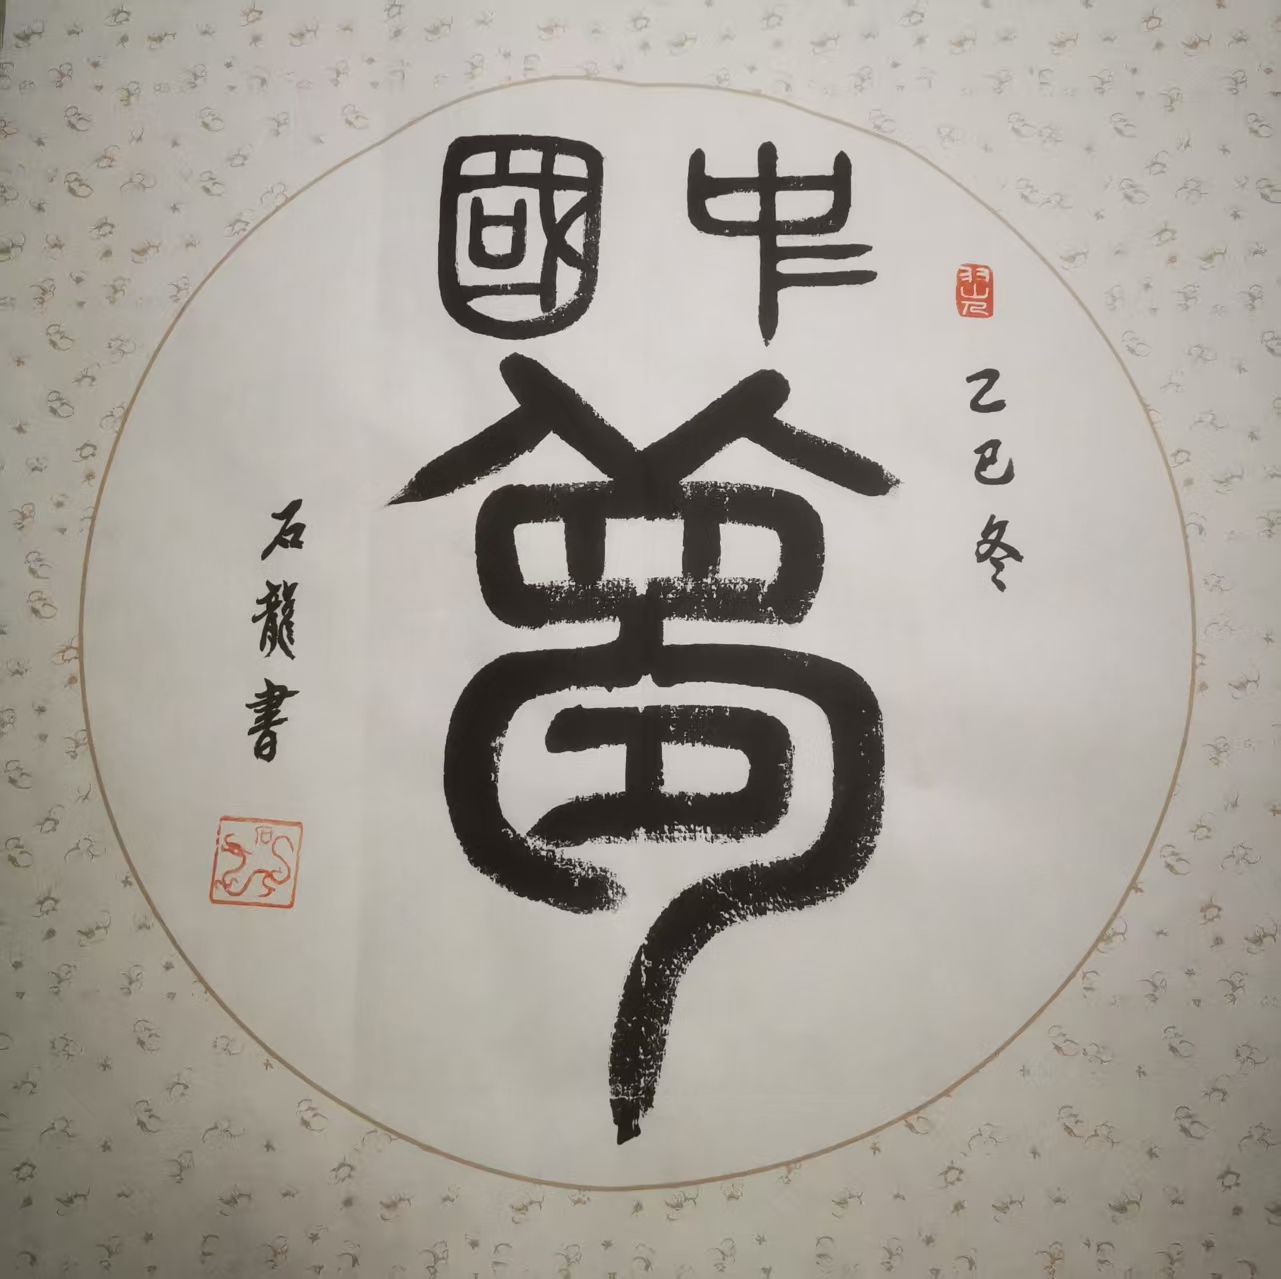 中國
夢
乙巳冬
石龍書